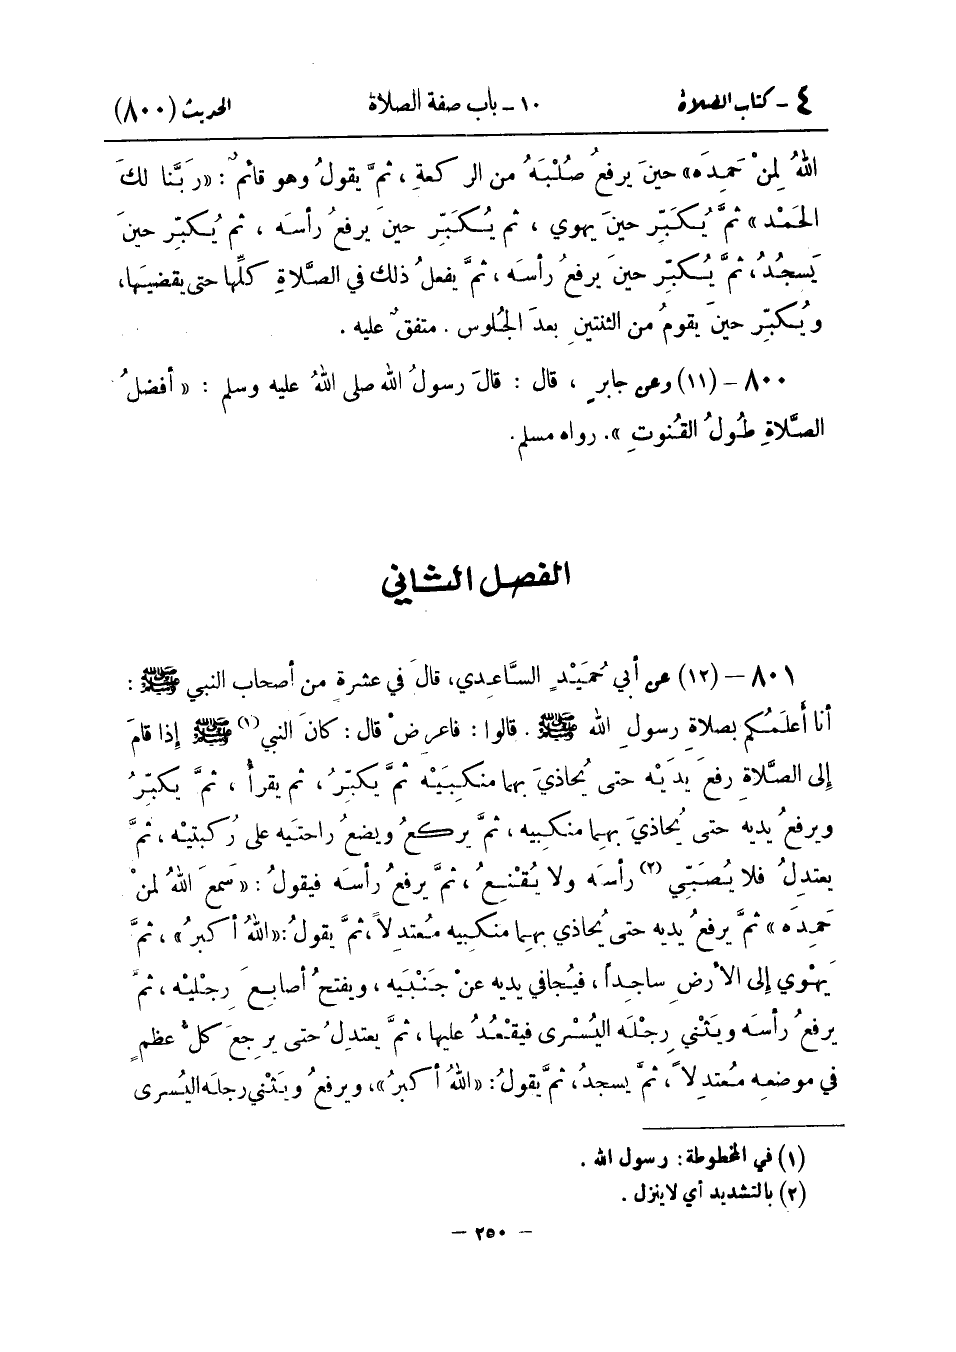 ٤ - كتاب الصلاة ١٠ - باب صفة الصلاة الحديث (٨٠٠)
اللهُ لِمنْ حَمِدَه» حينَ يرفعُ صُلْبَهُ من الركعةِ، ثمَّ يقولُ وهو قائمٌ: «رَبَّنا لكَ
الحَمْد» ثمَّ يُكَبِّر حينَ يهوي، ثم يُكَبِّر حينَ يرفعُ رأسَه، ثم يُكبِّر حينَ
يَسجُدُ، ثمَّ يُكبِّر حينَ يرفعُ رأسَه، ثمَّ يفعلُ ذلك في الصَّلاةِ كلِّها حتى يقضيَها،
ويُكبِّر حينَ يقومُ من الثنتينِ بعدَ الجُلوس. متفقٌ عليه.
٨٠٠ - (١١) وعن جابرٍ، قال: قالَ رسولُ الله صلى اللهُ عليه وسلم: «أفضلُ
الصَّلاةِ طُولُ القُنوتِ». رواه مسلم.
الفصل الثاني
٨٠١ - (١٢) عن أبي حُمَيْدٍ السَّاعِدي، قالَ في عشرةٍ من أصحاب النبي ﷺ:
أنا أعلَمُكم بصلاةِ رسولِ الله ﷺ. قالوا: فاعرِضْ قال: كانَ النبي(١) ﷺ إذا قامَ
إلى الصَّلاةِ رفعَ يدَيْه حتى يُحاذيَ بهما منكبَيْه ثمَّ يكبِّرُ، ثم يقرأُ، ثمَّ يكبِّرُ
ويرفعُ يديه حتى يُحاذيَ بهما منكبيه، ثمَّ يركعُ ويضعُ راحتَيه على رُكبتيْه، ثمَّ
يعتدلُ فلا يُصَبِّي(٢) رأسَه ولا يُقْنِعُ، ثمَّ يرفعُ رأسَه فيقولُ: «سَمعَ اللهُ لمنْ
حَمِدَه» ثمَّ يرفعُ يديه حتى يُحاذي بهما منكبيه مُعتدلاً، ثمَّ يقولُ: «اللهُ أكبرُ»، ثمَّ
يَهْوي إلى الأرضِ ساجداً، فيُجافي يديه عنْ جَنْبَيه، ويفتحُ أصابعَ رِجْليْه، ثمَّ
يرفعُ رأسَه ويَثْني رِجْلَه اليُسْرى فيقْعُدُ عليها، ثمَّ يعتدلُ حتى يرجعَ كلُّ عظمٍ
في موضعِه مُعتدلاً، ثمَّ يسجدُ، ثمَّ يقولُ: «اللهُ أكبرُ»، ويرفعُ ويَثْني رجلَه اليُسرى
(١) في المخطوطة: رسول الله.
(٢) بالتشديد أي لاينزل.
- ٢٥٠ -